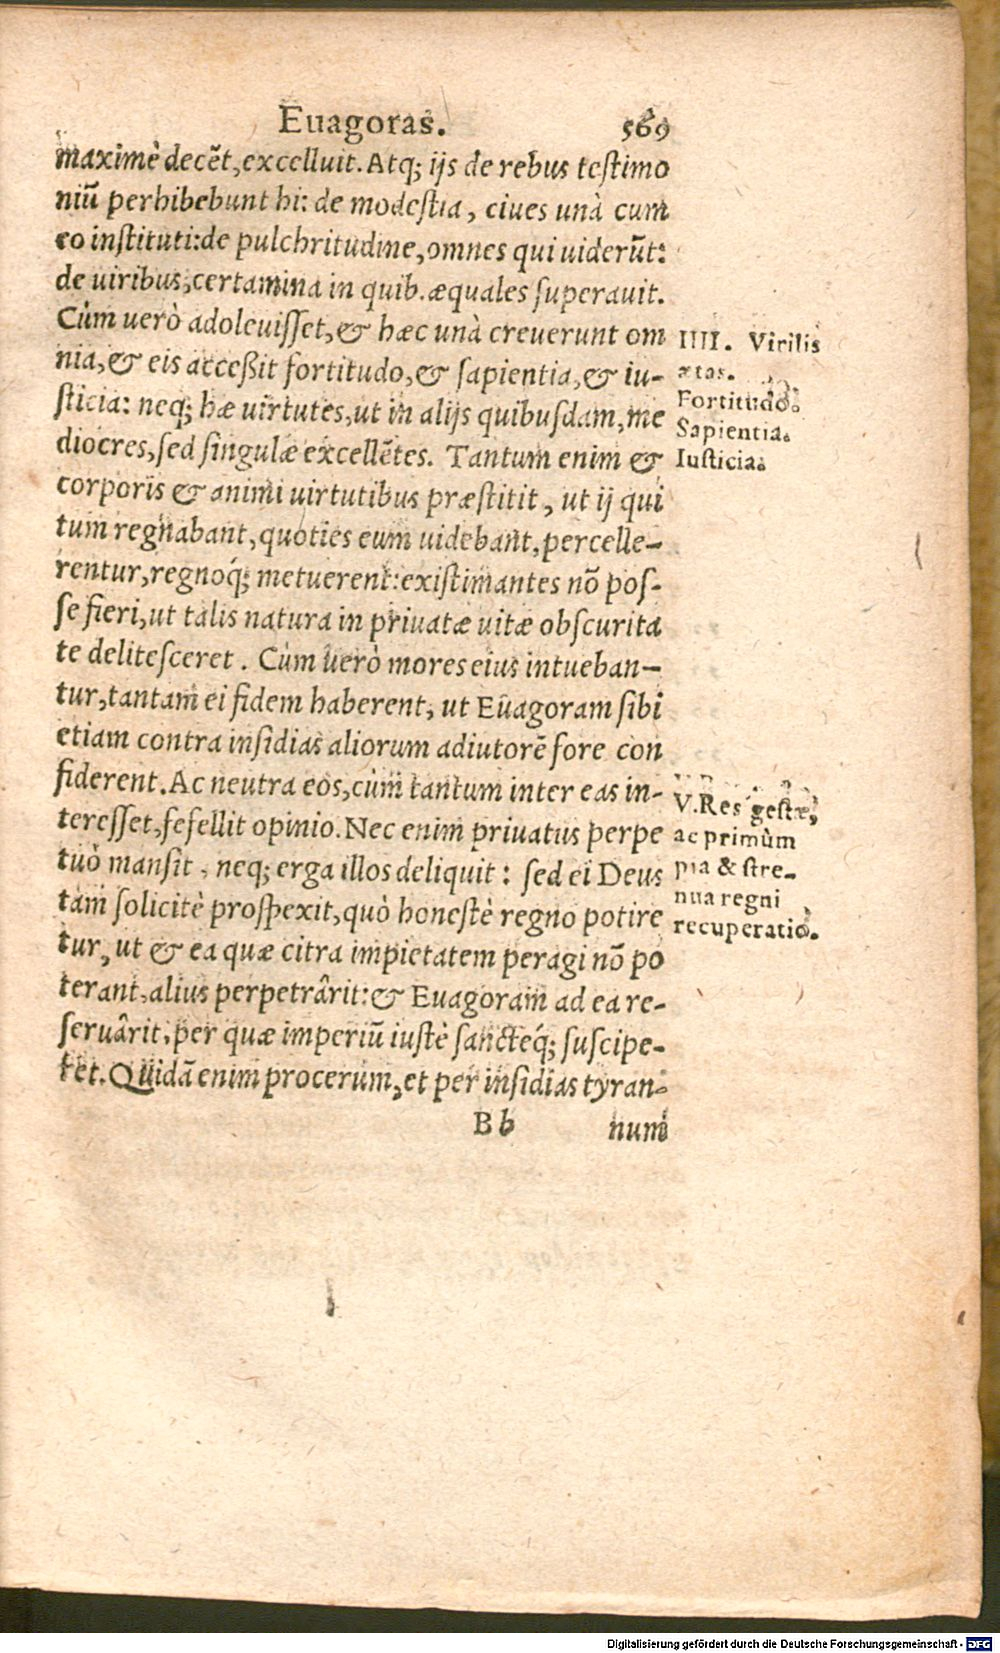 Euagoras. 569
maximè decẽt, excelluit. Atq; ijs de rebus testimo
niũ perhibebunt hi: de modestia, ciues unà cum
eo instituti: de pulchritudine, omnes qui uiderũt:
de uiribus, certamina in quib. æquales superauit.
Cùm uerò adoleuisset, & hæc unà creuerunt om
nia, & eis accessit fortitudo, & sapientia, & iu-
sticia: neq; hæ uirtutes, ut in alijs quibusdam, me
diocres, sed singulæ excellẽtes. Tantum enim &
corporis & animi uirtutibus præstitit, ut ij qui
tum regnabant, quoties eum uidebant, percelle-
rentur, regnoq́; metuerent: existimantes nõ pos-
se fieri, ut talis natura in priuatæ uitæ obscurita
te delitesceret. Cùm uerò mores eius intueban-
tur, tantam ei fidem haberent, ut Euagoram sibi
etiam contra insidias aliorum adiutorẽ fore con
fiderent. Ac neutra eos, cùm tantum inter eas in-
teresset, fefellit opinio. Nec enim priuatus perpe
tuò mansit, neq; erga illos deliquit: sed ei Deus
tam solicitè prospexit, quò honestè regno potire
tur, ut & ea quæ citra impietatem peragi nõ po
terant, alius perpetrârit: & Euagoram ad ea re-
seruârit, per quæ imperiũ iustè sancteq́; suscipe-
ret. Quidã enim procerum, et per insidias tyran-
Bb num
IIII. Virilis
ætas.
Fortitudo.
Sapientia.
Iusticia.
V. Res gestæ,
ac primùm
pia & stre-
nua regni
recuperatio.
Digitalisierung gefördert durch die Deutsche Forschungsgemeinschaft - DFG